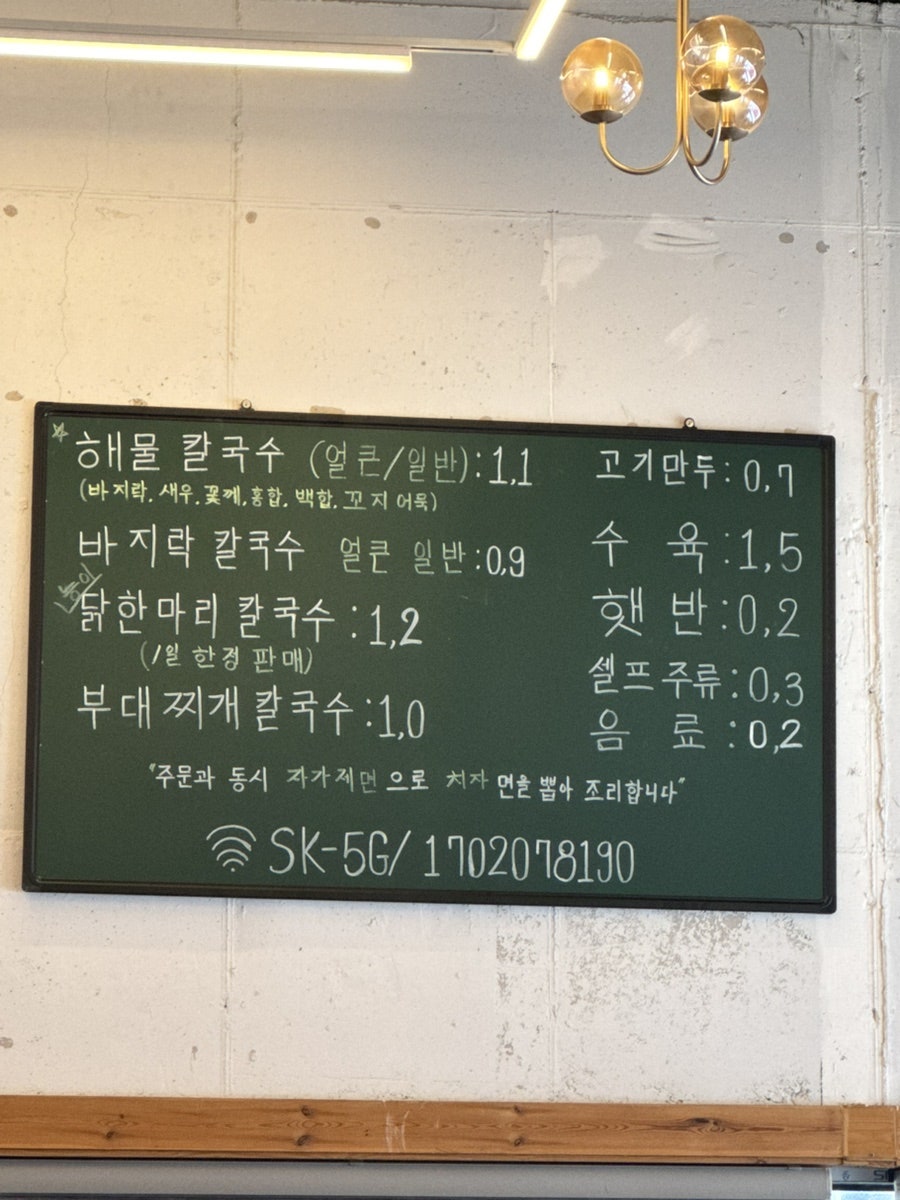 ☆ 해물 칼국수 (얼큰/일반):1,1
(바지락, 새우, 꽃께, 홍합, 백합, 꼬지어묵)
바지락 칼국수 얼큰 일반:0,9
닭한마리 칼국수:1,2
(1일 한정 판매)
부대찌개칼국수:1,0
고기만두:0,7
수육:1,5
햇반:0,2
셀프주류:0,3
음료:0,2
"주문과 동시 자가제면으로 치자 면을 뽑아 조리합니다"
SK-5G/ 1702078190